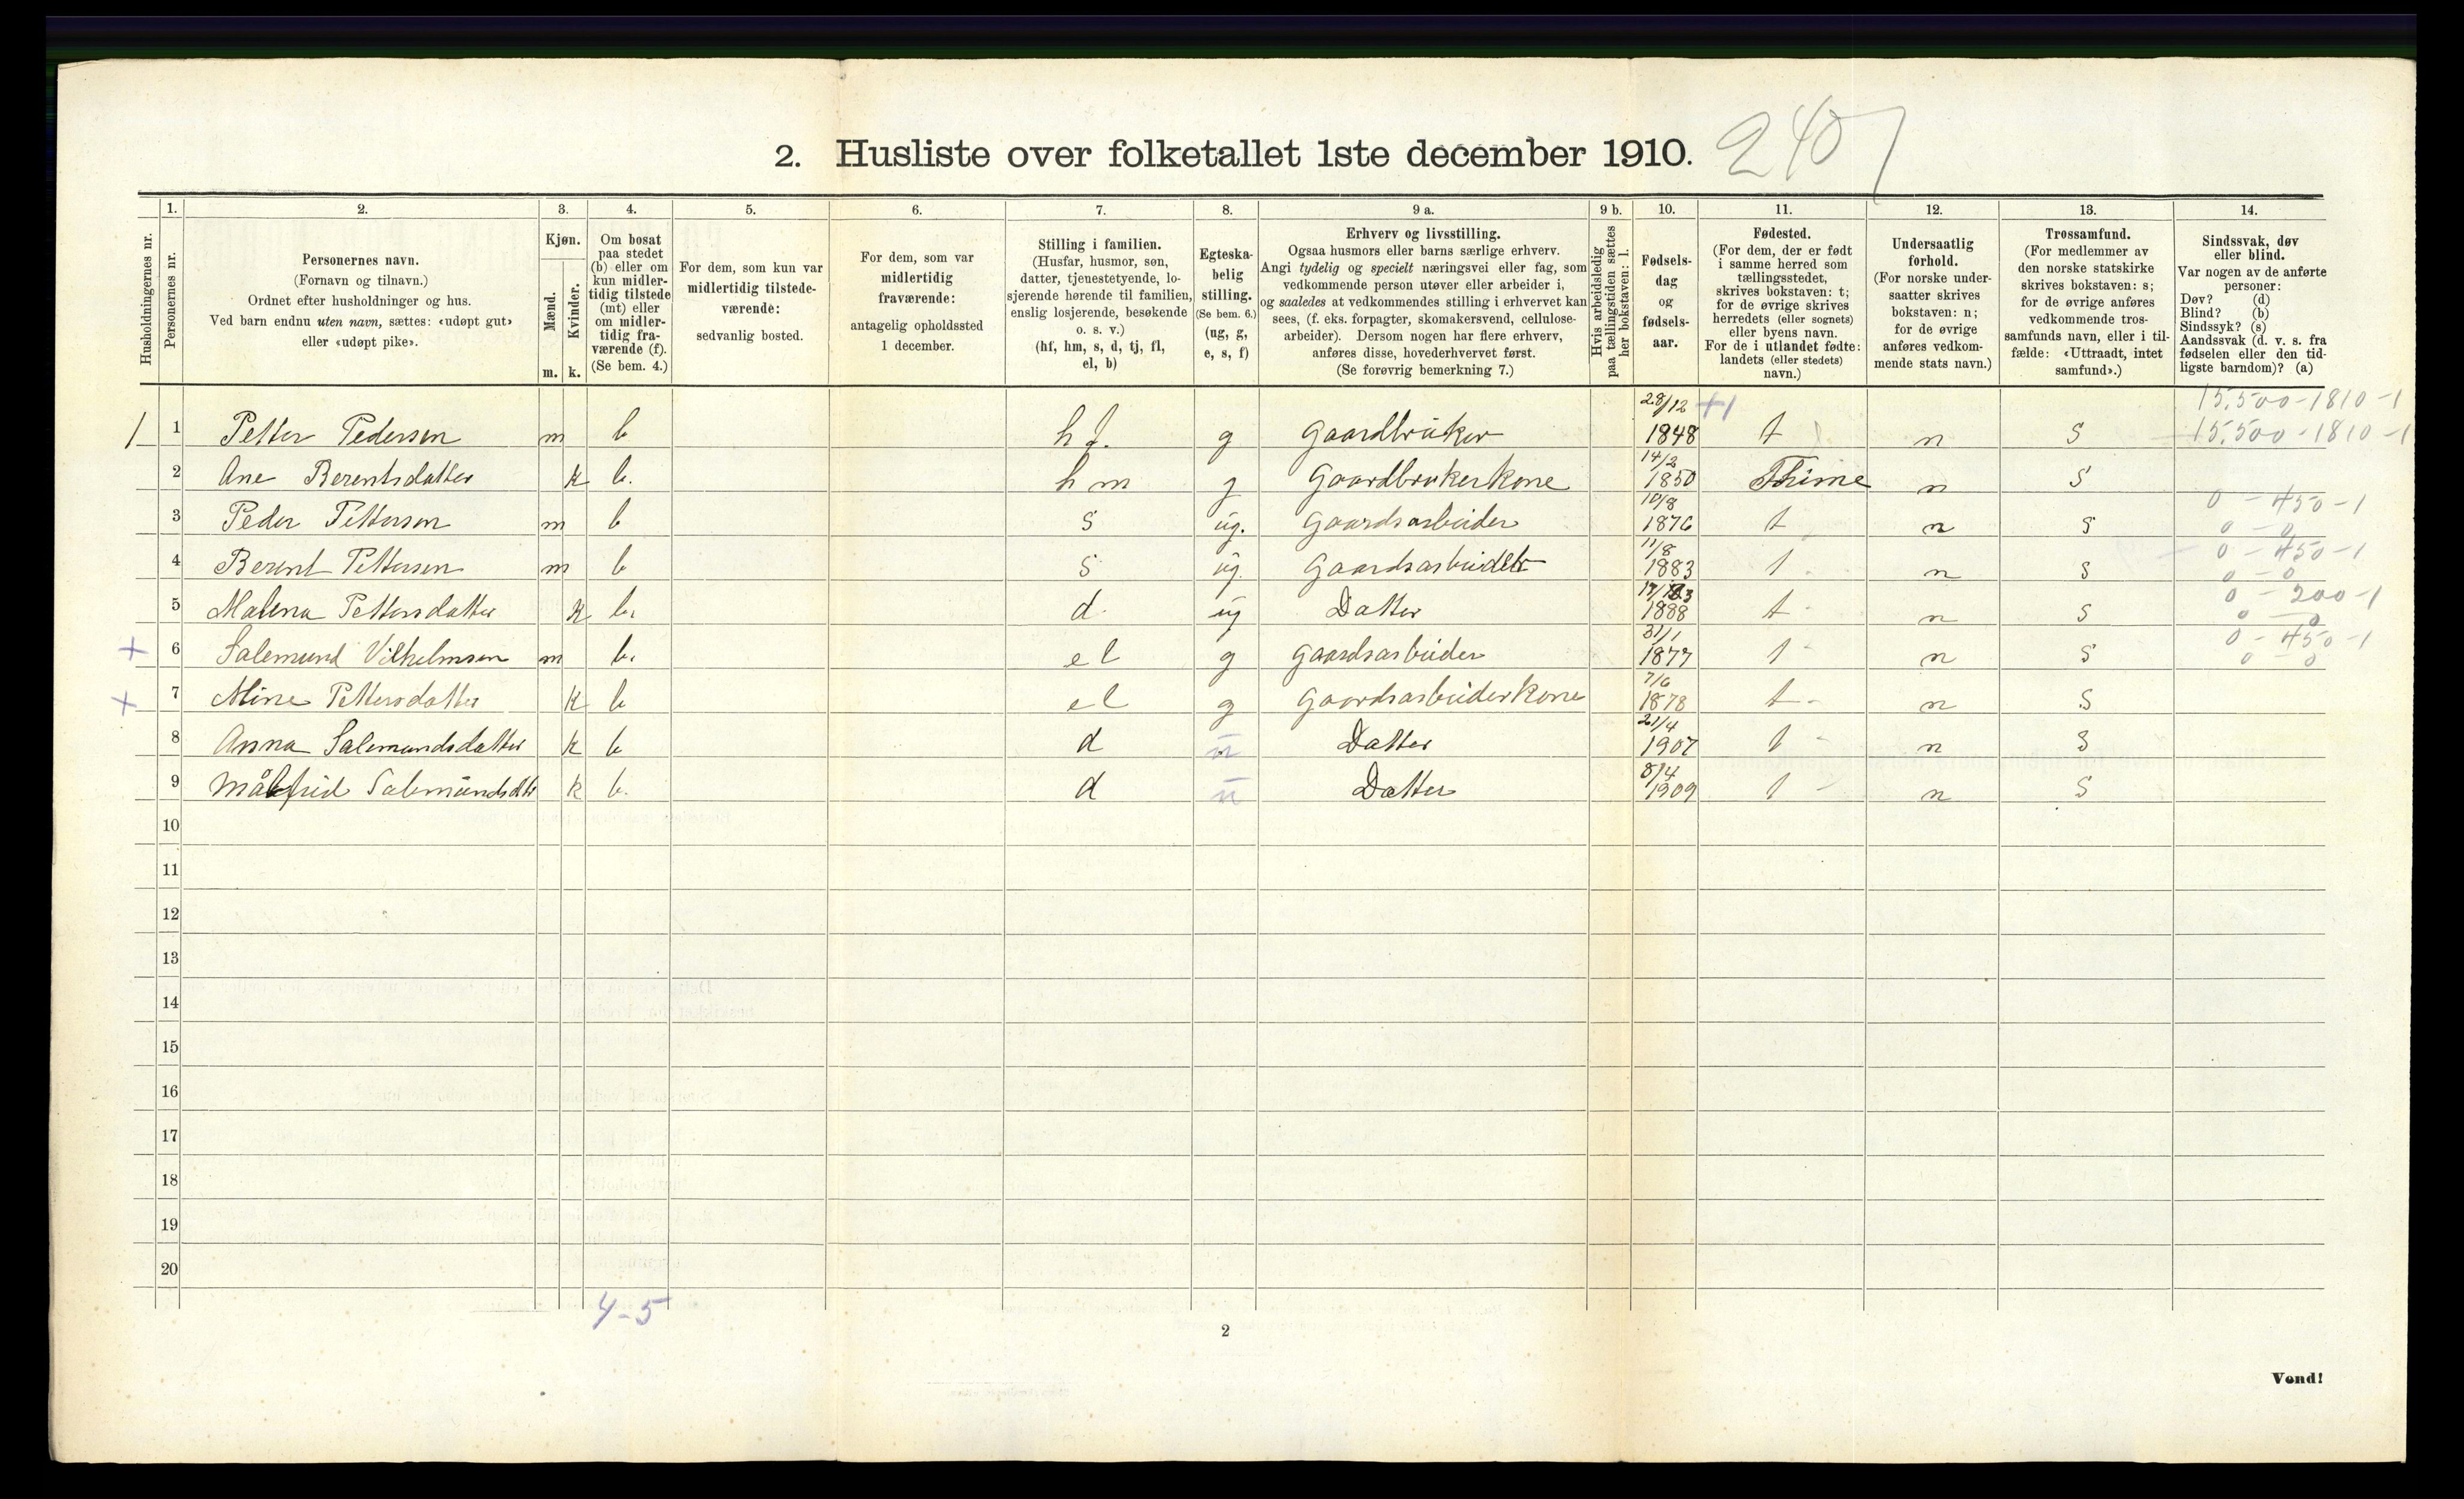 2. Husliste over folketallet 1ste december 1910. 240
1. 2. 3. 4. 5. 6. 7. 8. 9 a. 9 b. 10. 11. 12. 13. 14.
Husholdningernes nr.
Personernes nr.
Personernes navn.
(Fornavn og tilnavn.)
Ordnet efter husholdninger og hus.
Ved barn endnu uten navn, sættes: «udøpt gut»
eller «udøpt pike».
Kjøn.
Mænd.
Kvinder.
m. k.
Om bosat
paa stedet
(b) eller om
kun midler-
tidig tilstede
(mt) eller
om midler-
tidig fra-
værende (f).
(Se bem. 4.)
For dem, som kun var
midlertidig tilstede-
værende:
sedvanlig bosted.
For dem, som var
midlertidig
fraværende:
antagelig opholdssted
1 december.
Stilling i familien.
(Husfar, husmor, søn,
datter, tjenestetyende, lo-
sjerende hørende til familien,
enslig losjerende, besøkende
o. s. v.)
(hf, hm, s, d, tj, fl,
el, b)
Egteska-
belig
stilling.
(Se bem. 6.)
(ug, g,
e, s, f)
Erhverv og livsstilling.
Ogsaa husmors eller barns særlige erhverv.
Angi tydelig og specielt næringsvei eller fag, som
vedkommende person utøver eller arbeider i,
og saaledes at vedkommendes stilling i erhvervet kan
sees, (f. eks. forpagter, skomakersvend, cellulose-
arbeider). Dersom nogen har flere erhverv,
anføres disse, hovederhvervet først.
(Se forøvrig bemerkning 7.)
Hvis arbeidsledig
paa tællingstiden sættes
her bokstaven: l.
Fødsels-
dag
og
fødsels-
aar.
Fødested.
(For dem, der er født
i samme herred som
tællingsstedet,
skrives bokstaven: t;
for de øvrige skrives
herredets (eller sognets)
eller byens navn.
For de i utlandet fødte:
landets (eller stedets)
navn.)
Undersaatlig
forhold.
(For norske under-
saatter skrives
bokstaven: n;
for de øvrige
anføres vedkom-
mende stats navn.)
Trossamfund.
(For medlemmer av
den norske statskirke
skrives bokstaven: s;
for de øvrige anføres
vedkommende tros-
samfunds navn, eller i til-
fælde: «Uttraadt, intet
samfund».)
Sindssvak, døv
eller blind.
Var nogen av de anførte
personer:
Døv? (d)
Blind? (b)
Sindssyk? (s)
Aandssvak (d. v. s. fra
fødselen eller den tid-
ligste barndom)? (a)
28/12 +1 15.500-1810-1
1 1 Petter Pedersen m b hf. g Gaardbruker 1848 t n S 15.500-1810-1
14/2
2 Ane Berentsdatter k b. hm g Gaardbrukerkone 1850 Thime n S
10/8 0-450-1
3 Peder Pettersen m b S ug. Gaardsarbeider 1876 t n S 0-0
11/8 0-450-1
4 Berent Pettersen m b S ug. Gaardsarbeider 1883 t n S 0-0
0-200-1
5 Malena Pettersdatter k b. d. ug Datter 1888 t n S 0-0
31/1 0-450-1
+ 6 Salemund Vilhelmsen m b. el g Gaardsarbeider 1877 t n S 0-0
7/6
+ 7 Mine Pettersdatter k b el g Gaardsarbeiderkone 1878 t n S
21/4
8 Anna Salemundsdatter k b d u Datter 1907 t n S
8/4
9 Målfrid Salemundsdtr k b. d u Datter 1909 t n S
10
11
12
13
14
15
16
17
18
19
20
4-5
2
Vend!